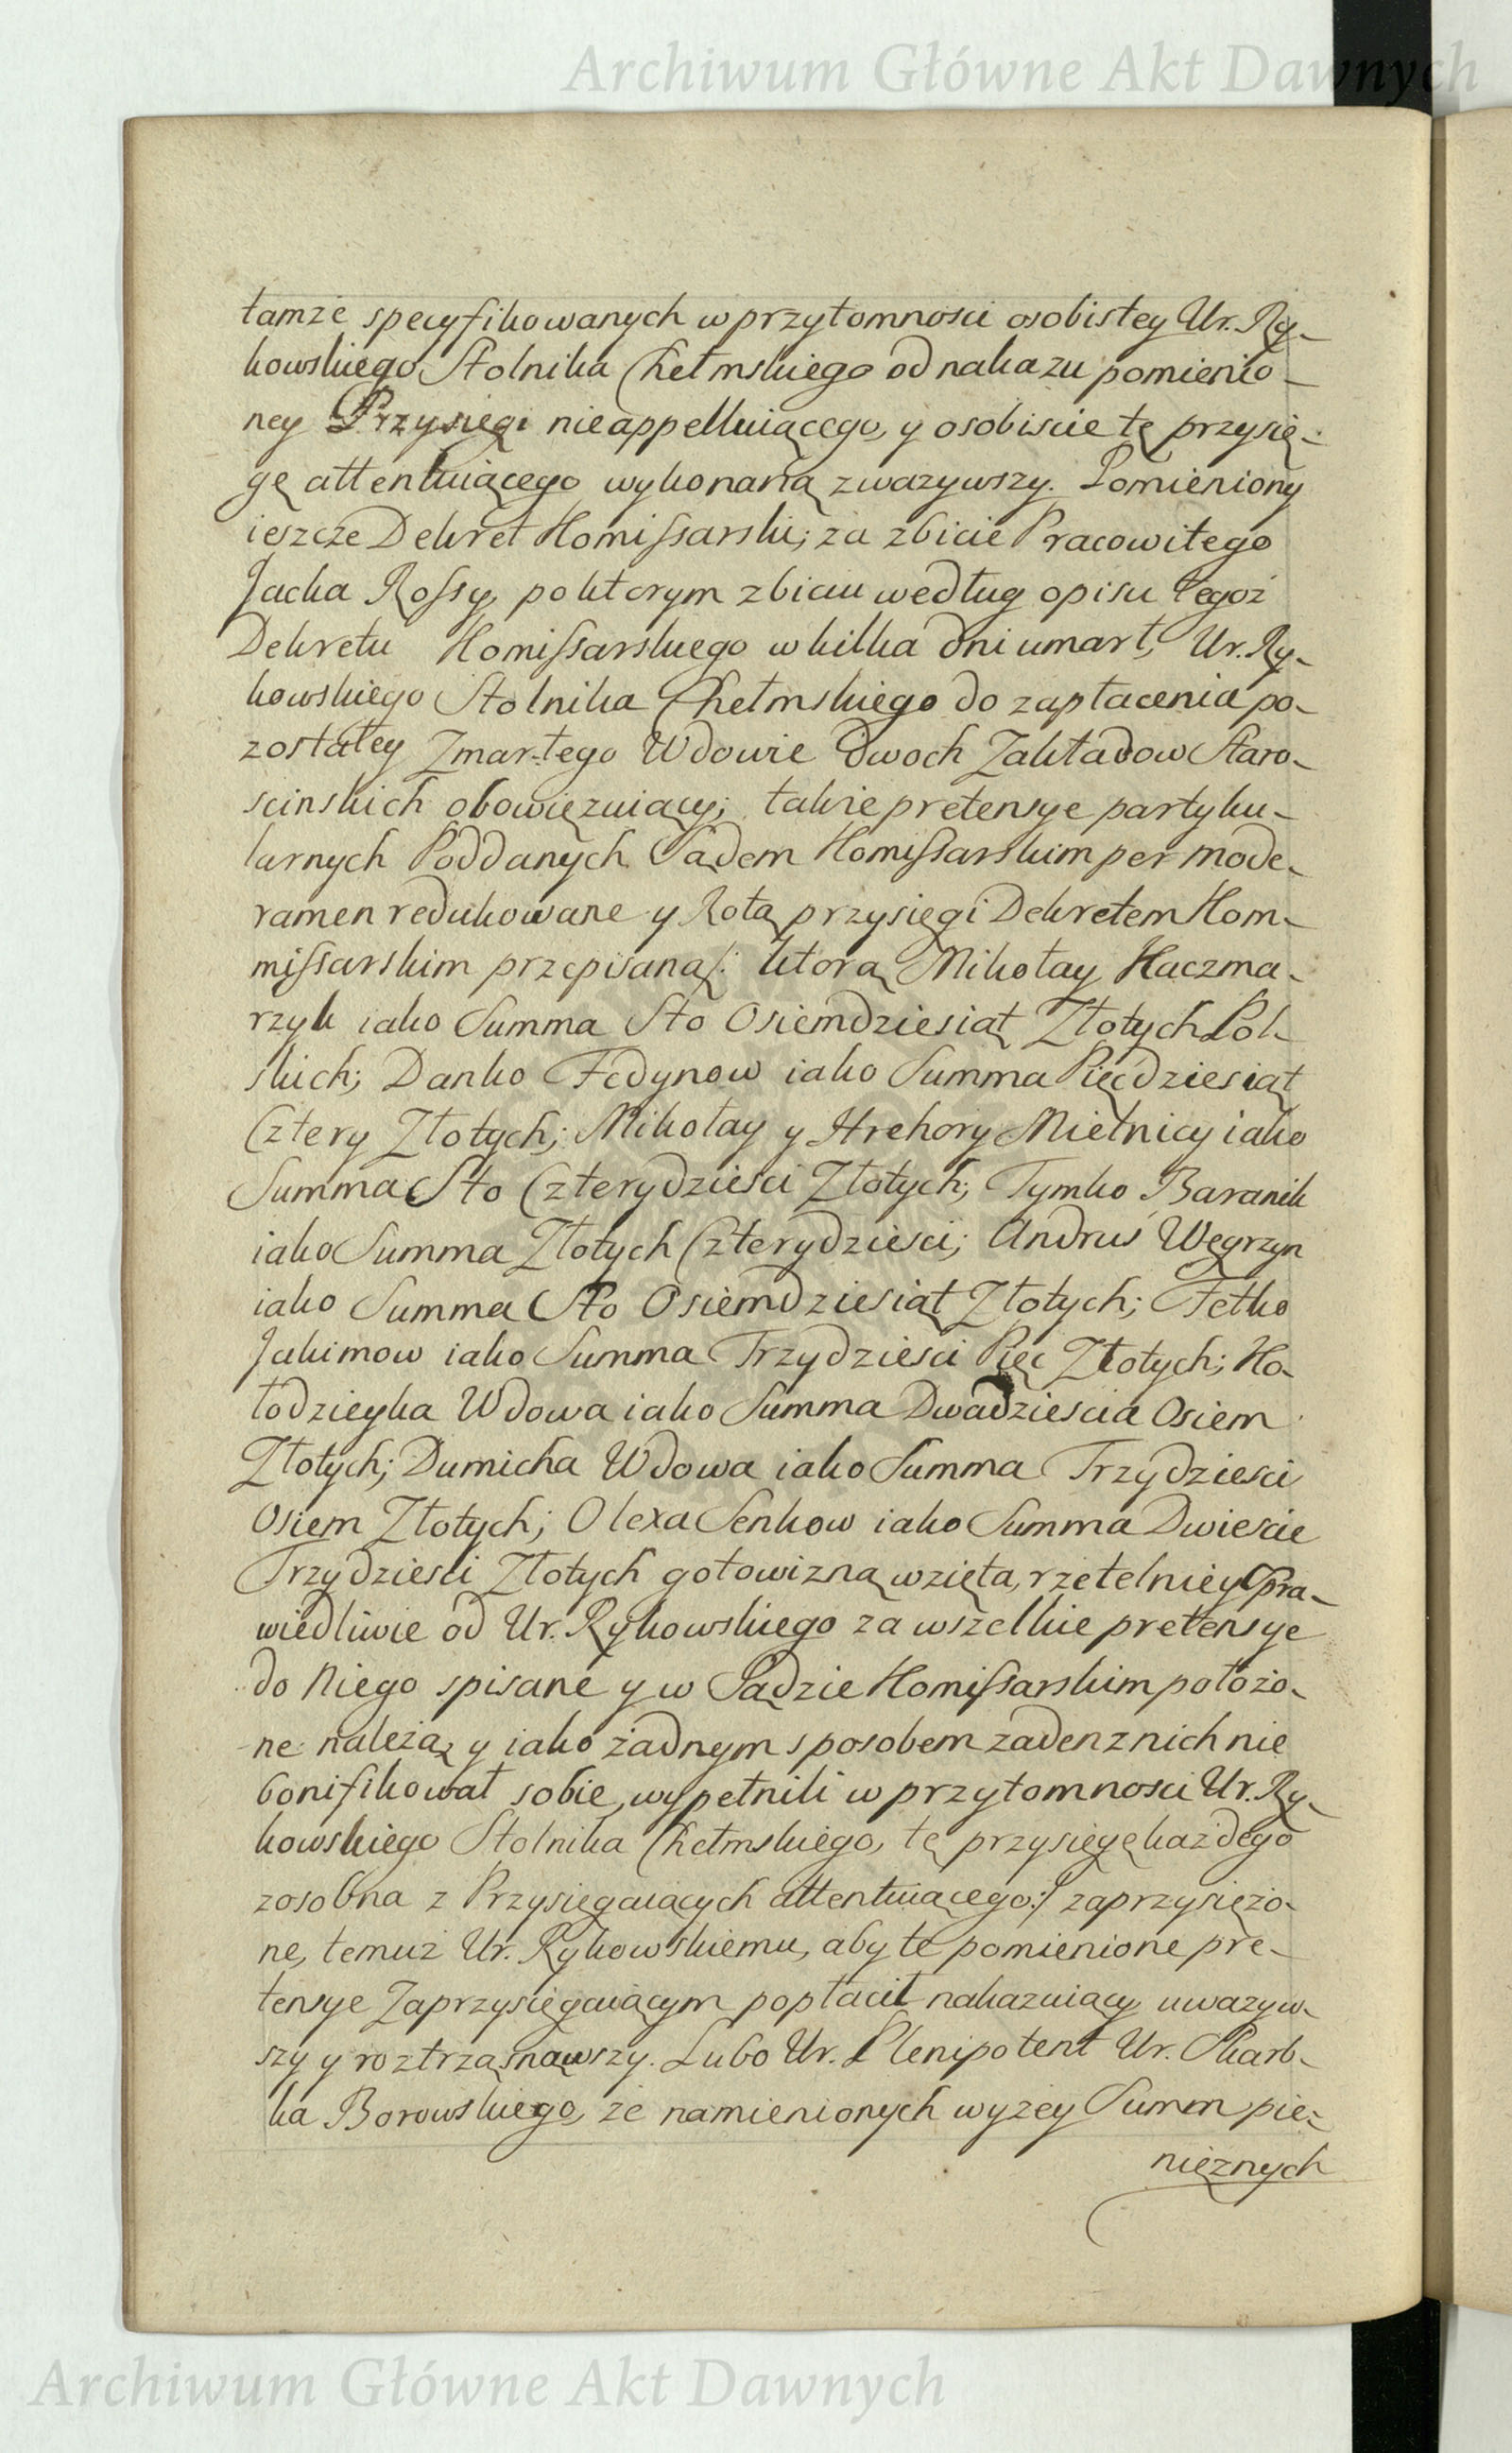 Archiwum Główne Akt Dawnych
tamże specyfikowanych w przytomnosci osobistey Ur. Ry-
kowskiego Stolnika Chełmskiego od nakazu pomienio-
ney Przysięgi nieappelluiącego, y osobiscie tę przysię-
gę attentuiącego wykonaną zwazywszy. Pomieniony
ieszcze Dekret Komissarski; za zbicie Pracowitego
Jacka Rossy, po ktorym zbiciu według opisu tegoż
Dekretu Komissarskiego w kilka dni umarł, Ur. Ry-
kowskiego Stolnika Chełmskiego do zapłacenia po-
zostałey Zmarłego Wdowie dwoch Zakładow Staro-
scinskich obowięzuiący; takie pretensye partyku-
larnych Poddanych Sądem Komissarskim per mode-
ramen redukowane y Rotą przysięgi Dekretem Kom-
missarskim przepisaną /: ktorą Mikołay Kaczma-
rzyk iako Summa Sto Osiemdziesiąt Złotych Pol-
skich; Danko Fedynow iako Summa Pięcdziesiąt
Cztery Złotych; Mikołay y Hrehory Mielnicy iako
Summa Sto Czterydziesci Złotych; Tymko Baranik
iako Summa Złotych Czterydziesci; Andrus Węgrzyn
iako Summa Sto Osiemdziesiąt Złotych; Fetko
Jakimow iako Summa Trzydziesci Pięc Złotych; Ko-
łodzieyka Wdowa iako Summa Dwadziescia Osiem
Złotych; Dumicha Wdowa iako Summa Trzydziesci
Osiem Złotych; Olexa Senkow iako Summa Dwiescie
Trzydziesci Złotych gotowizną wzięta, rzetelnie y Spra-
wiedliwie od Ur. Rykowskiego za wszelkie pretensye
do Niego spisane y w Sądzie Komissarskim położo-
ne należą, y iako żadnym sposobem zaden z nich nie
bonifikował sobie, wypełnili w przytomnosci Ur. Ry-
kowskiego Stolnika Chełmskiego, tę przysięgę każdego
zosobna z Przysięgaiących attentuiącego :/ zaprzysiężo-
ne, temuż Ur. Rykowskiemu, aby te pomienione pre-
tensye Zaprzysięgaiącym popłacił nakazuiący uwazyw-
szy y roztrząsnąwszy. Lubo Ur. Plenipotent Ur. Skarb-
ka Borowskiego, że namienionych wyzey Summ pie-
nięznych
Archiwum Główne Akt Dawnych